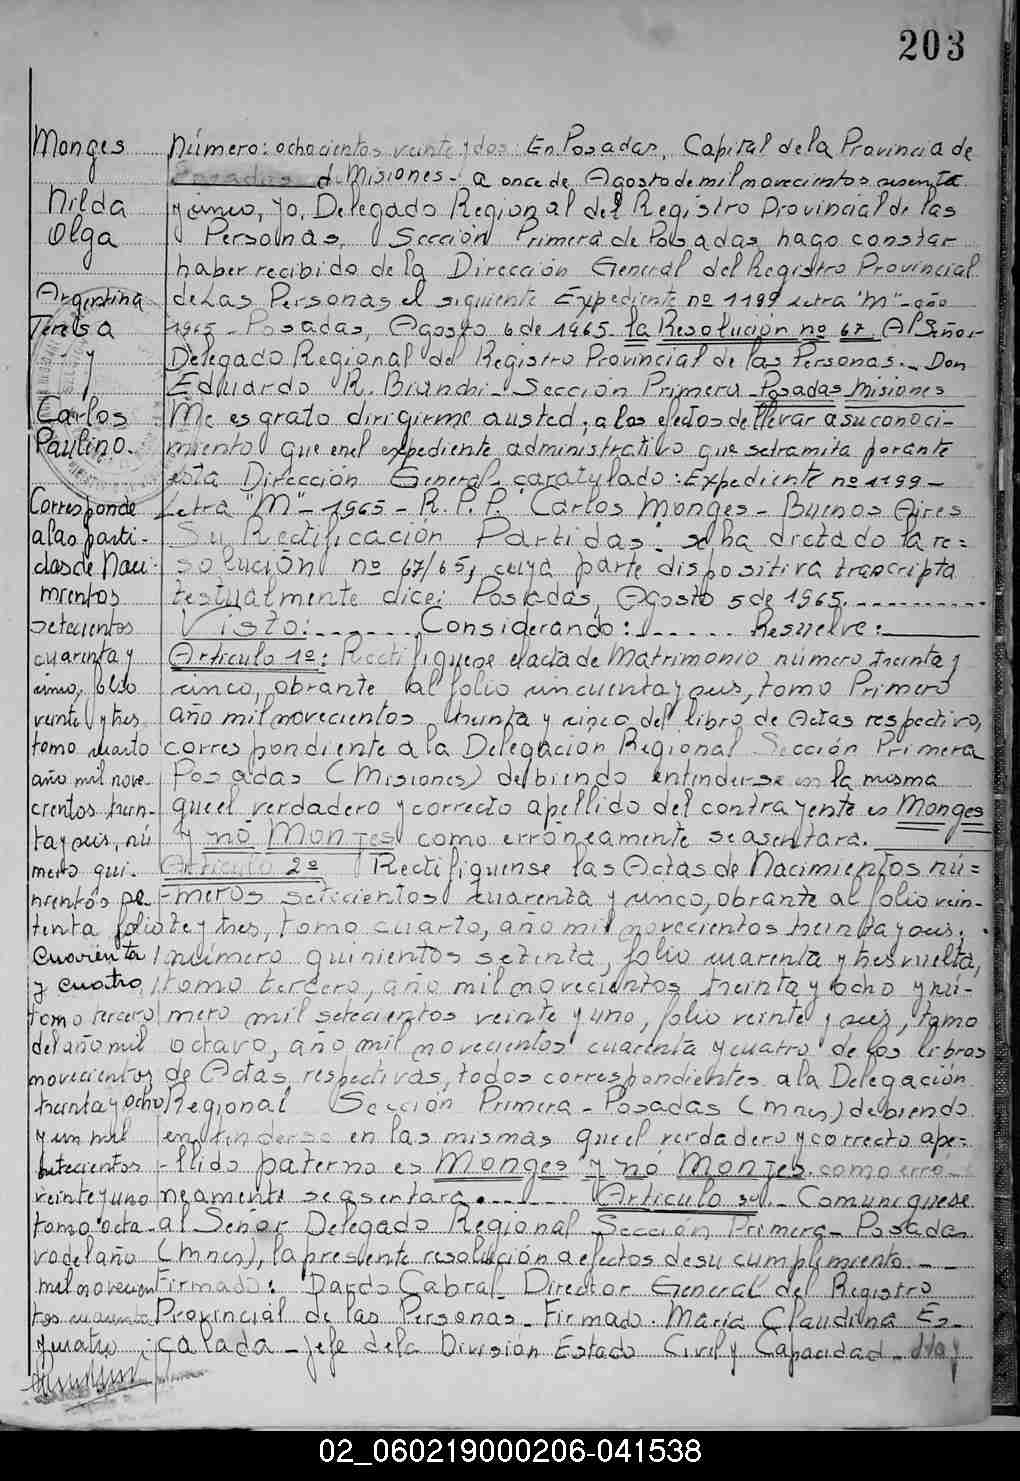 203
Monges
Nilda
Olga
Argentina
Teresa
y
Carlos
Paulino.
Corresponde
a las parti-
das de Naci-
mientos
setecientos
cuarenta y
cinco, folio
veinte y tres
tomo cuarto
año mil nove-
cientos trein-
ta y seis, nú
mero qui-
nientos se-
tenta folio
cuarenta
y cuatro
tomo tercero
del año mil
novecientos
treinta y ocho
y un mil
setecientos
veinte y uno
tomo octa-
vo del año
mil novecien
tos cuarenta
y cuatro
Número: ochocientos veinte y dos: En Posadas, Capital de la Provincia de
Posadas de Misiones - a once de Agosto de mil novecientos sesenta
y cinco, yo, Delegado Regional del Registro Provincial de las
Personas, Sección Primera de Posadas, hago constar
haber recibido de la Dirección General del Registro Provincial
de Las Personas, el siguiente Expediente nº 1199 Letra "M" - año
1965 - Posadas, Agosto 6 de 1965. la Resolución nº 67. Al Señor
Delegado Regional del Registro Provincial de las Personas. - Don
Eduardo R. Bianchi - Sección Primera - Posadas Misiones
Me es grato dirigirme a usted, a los efectos de llevar a su conoci-
miento que en el expediente administrativo que se tramita por ante
esta Dirección General caratulado: Expediente nº 1199 -
Letra "M" - 1965 - R. P. P. Carlos Monges - Buenos Aires
Su Rectificación Partidas: se ha dictado la re=
solución nº 67/65, cuya parte dispositiva transcripta
textualmente dice: Posadas, Agosto 5 de 1965.
Visto: ...... Considerando: ...... Resuelve:
Artículo 1º: Rectifíquese el acta de Matrimonio número treinta y
cinco, obrante al folio cincuenta y seis, tomo Primero
año mil novecientos treinta y cinco del libro de Actas respectivo,
correspondiente a la Delegación Regional Sección Primera
Posadas (Misiones) debiendo entenderse en la misma
que el verdadero y correcto apellido del contrayente es Monges
y no Monjes como erróneamente se asentara.
Artículo 2º Rectifíquense las Actas de Nacimientos nú=
meros setecientos cuarenta y cinco, obrante al folio vein-
te y tres, tomo cuarto, año mil novecientos treinta y seis.
número quinientos setenta, folio cuarenta y tres vuelta,
tomo tercero, año mil novecientos treinta y ocho y nú-
mero mil setecientos veinte y uno, folio veinte y seis, tomo
octavo, año mil novecientos cuarenta y cuatro de los libros
de Actas respectivas, todos correspondientes a la Delegación
Regional Sección Primera - Posadas (Mnes) debiendo
entenderse en las mismas que el verdadero y correcto ape=
llido paterno es Monges y no Monjes como erró-
neamente se asentara. Artículo 3º - Comuníquese
al Señor Delegado Regional Sección Primera - Posadas
(Mnes), la presente resolución a efectos de su cumplimiento. -
Firmado: Dardo Cabral Director General del Registro
Provincial de las Personas - Firmado. María Claudina Es-
calada - Jefe de la División Estado Civil y Capacidad - Hay
02_060219000206-041538